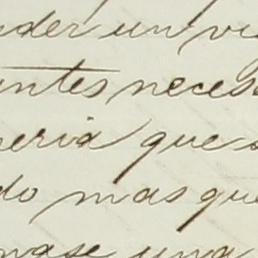 nder un vi
antes neces
neria que s
do mas que
nase una